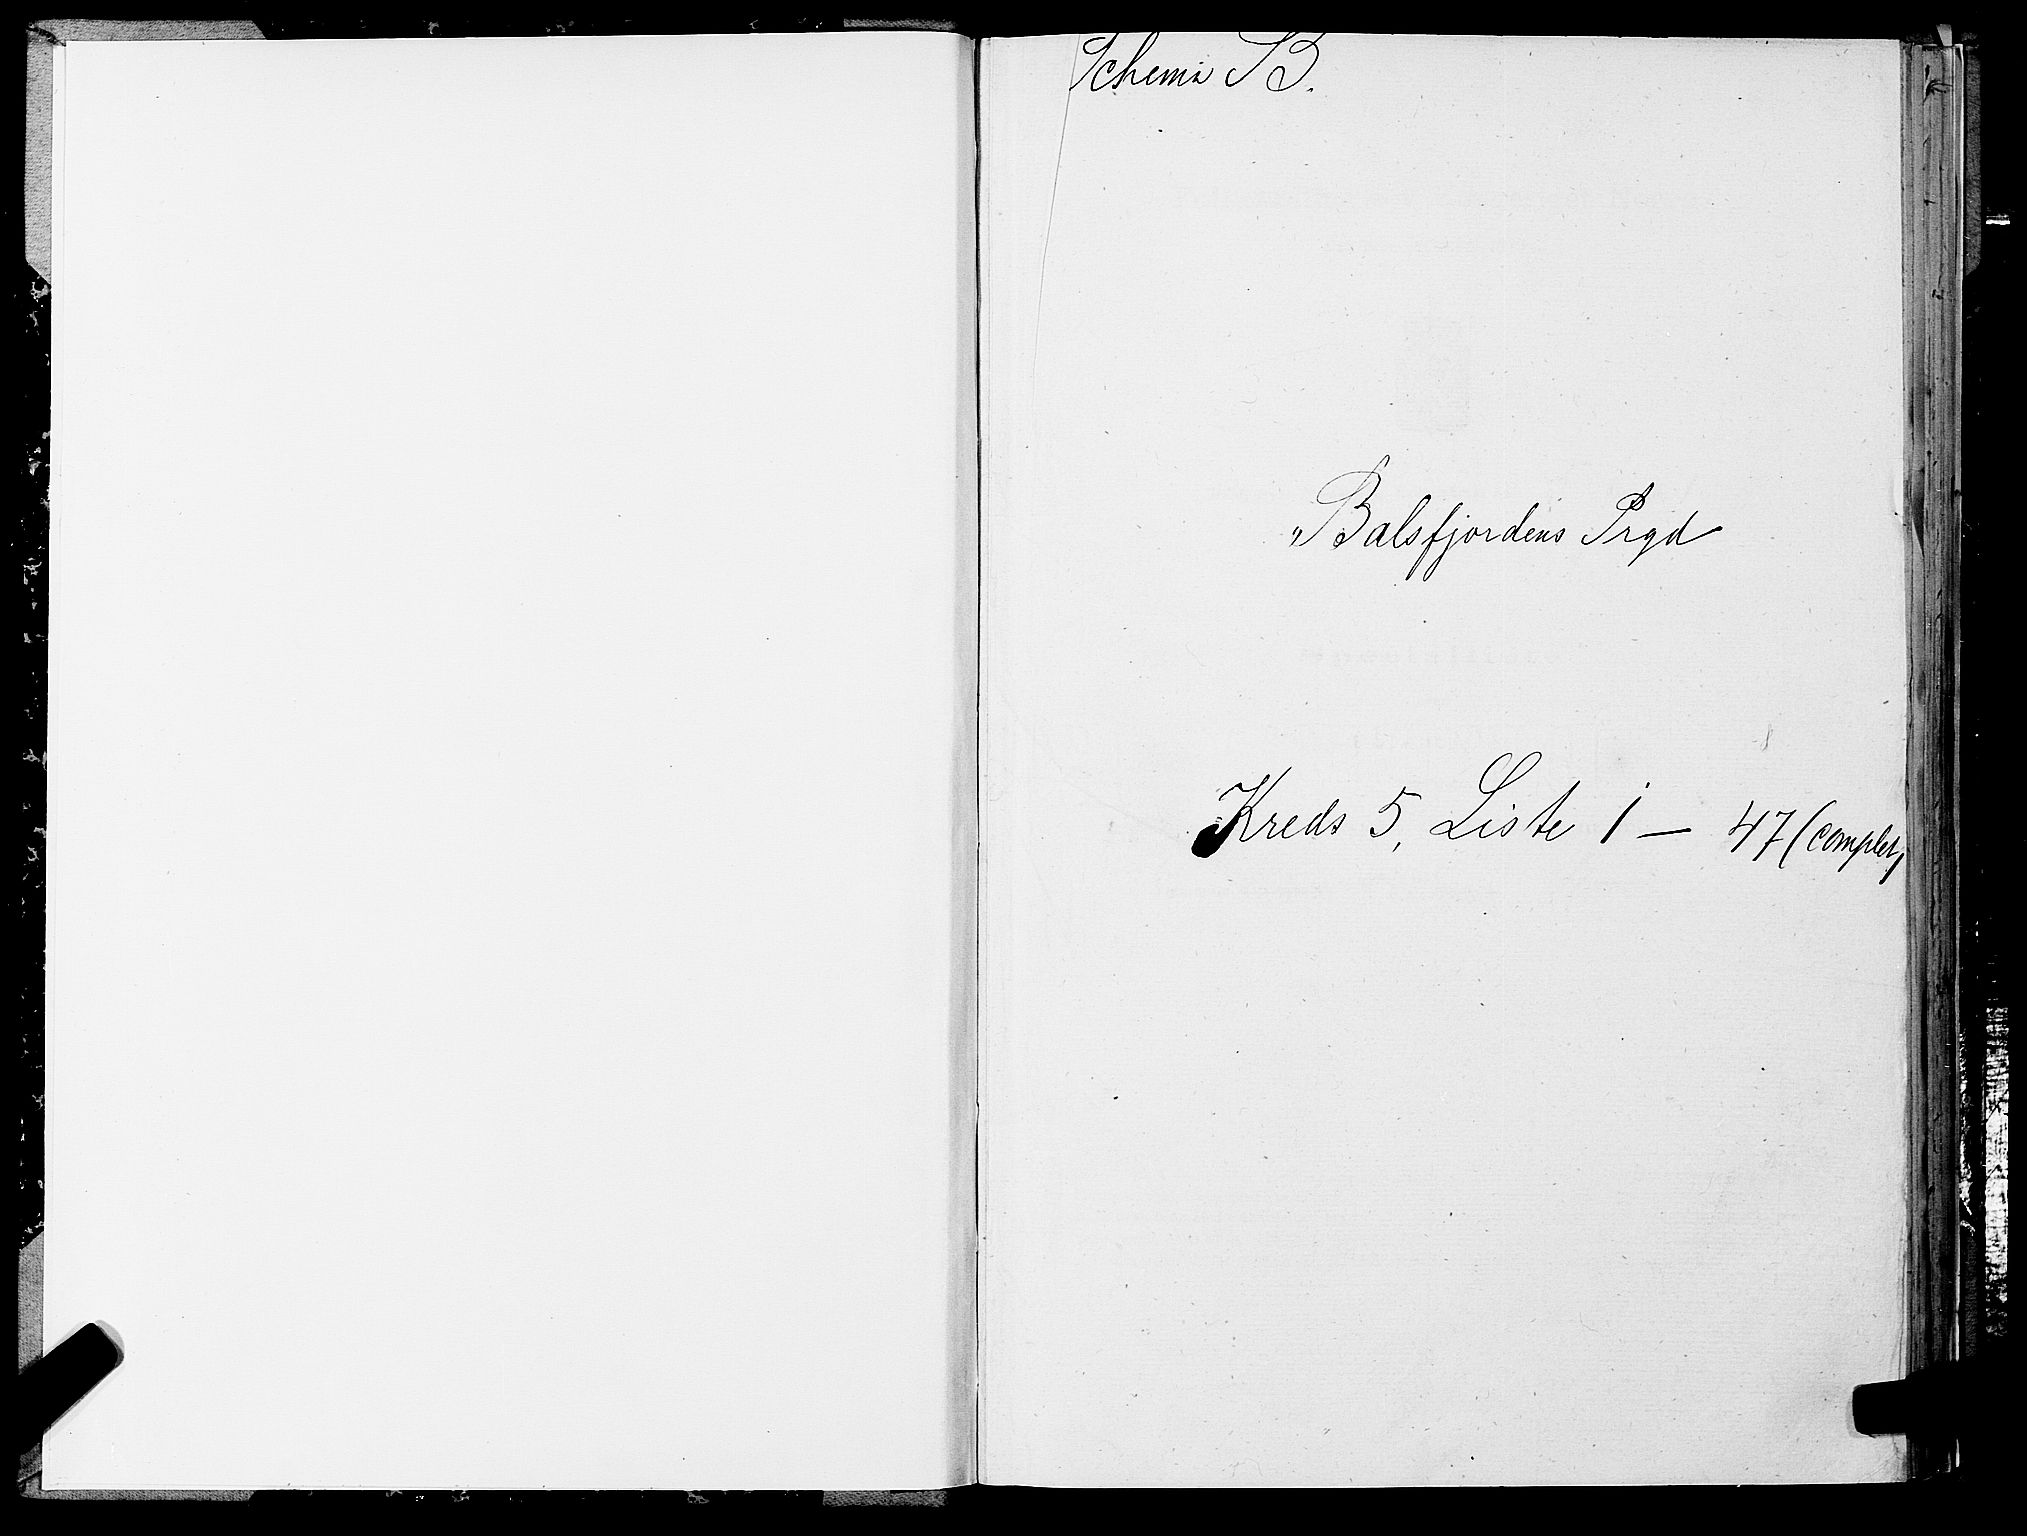 Schema B.
"Balsfjordens Prgd
Kreds 5, Liste 1 — 47 (complet)